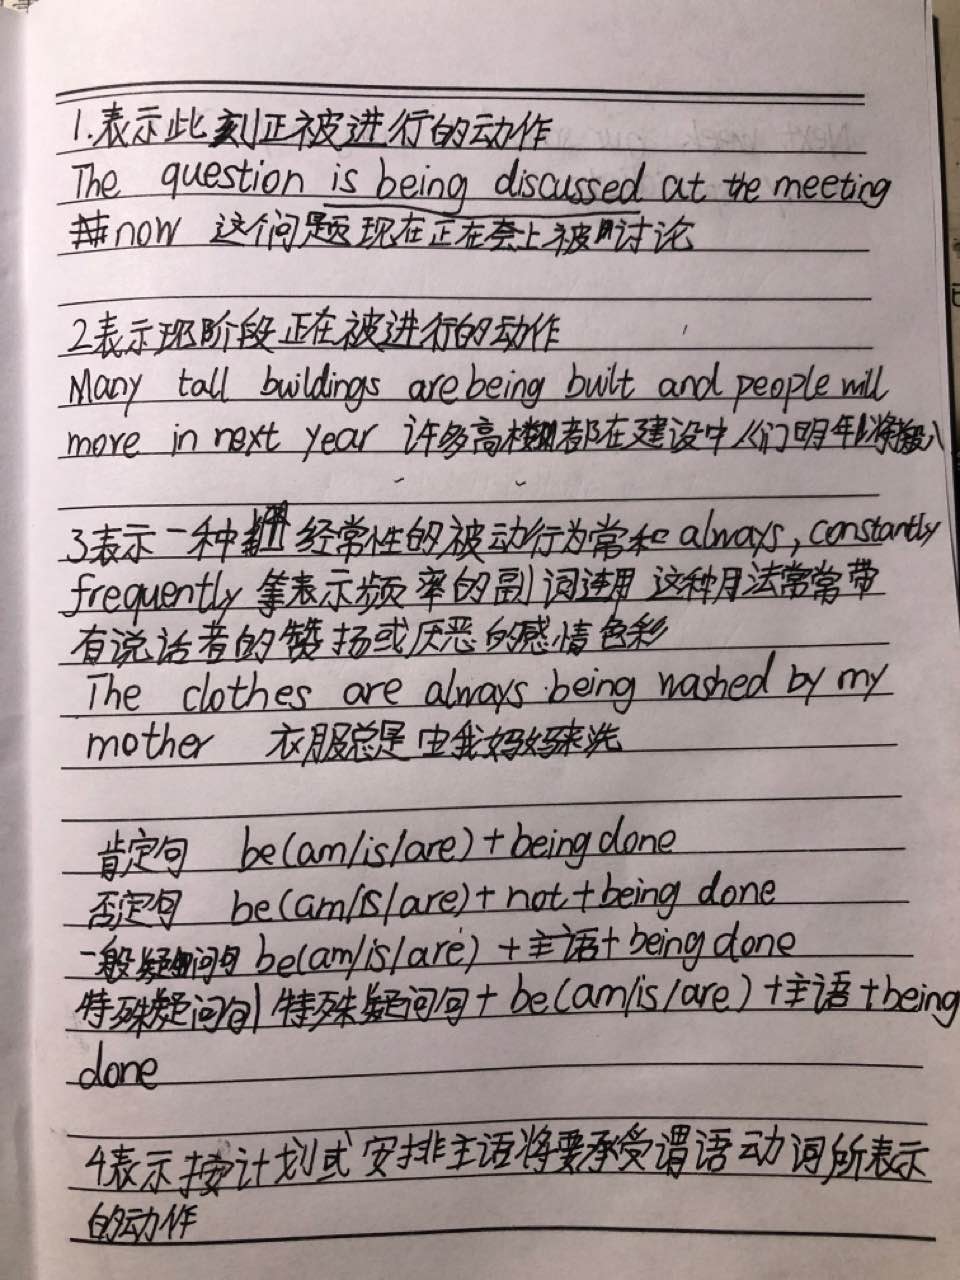 1.表示此刻正被进行的动作
The question is being discussed at the meeting
now 这个问题现在正在会上被讨论
2表示现阶段正在被进行的动作
Many tall buildings are being built and people will
move in next year 许多高楼都在建设中人们明年将搬入
3表示一种 经常性的被动行为常和always, constantly
frequently 等表示频率的副词连用 这种用法常常带
有说话者的赞扬或厌恶的感情色彩
The clothes are always being washed by my
mother 衣服总是由我妈妈来洗
肯定句 be(am/is/are)+being done
否定句 be(am/is/are)+not+being done
一般疑问句 be(am/is/are)+主语+being done
特殊疑问句 特殊疑问句+be(am/is/are)+主语+being
done
4表示按计划或安排主语将要承受谓语动词所表示
的动作